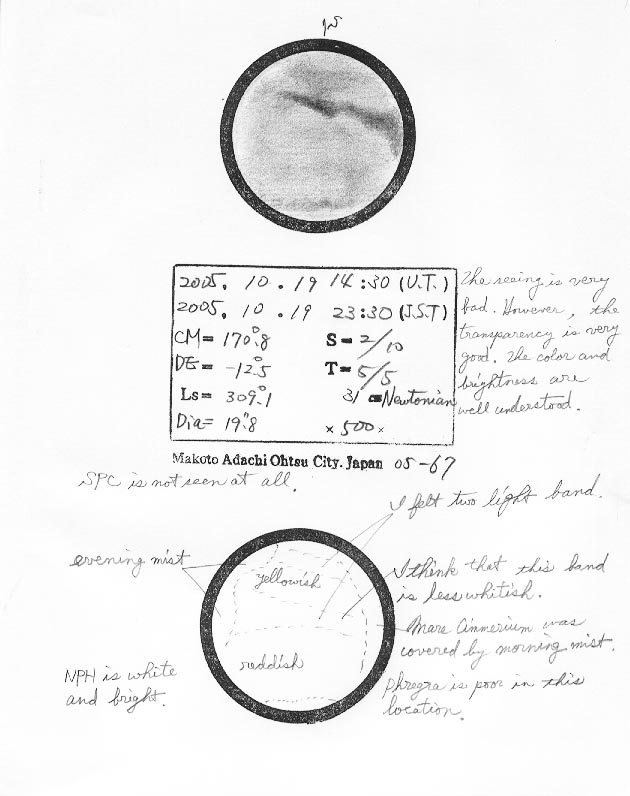 2005. 10. 19 14:30 (U.T.)
2005. 10. 19 23:30 (J.S.T)
CM= 170°.8 S= 2/10
DE= -12°.5 T= 5/5
Ls= 309°.1 31 cm Newtonian
Dia= 19".8 × 500 ×
The seeing is very
bad. However, the
transparency is very
good. The color and
brightness are
well understood.
Makoto Adachi Ohtsu City. Japan 05-67
SPC is not seen at all.
I felt two light band.
evening mist
yellowish
I think that this band
is less whitish.
Mare Cimmerium was
covered by morning mist.
reddish
NPH is white
and bright.
Phregra is poor in this
location.